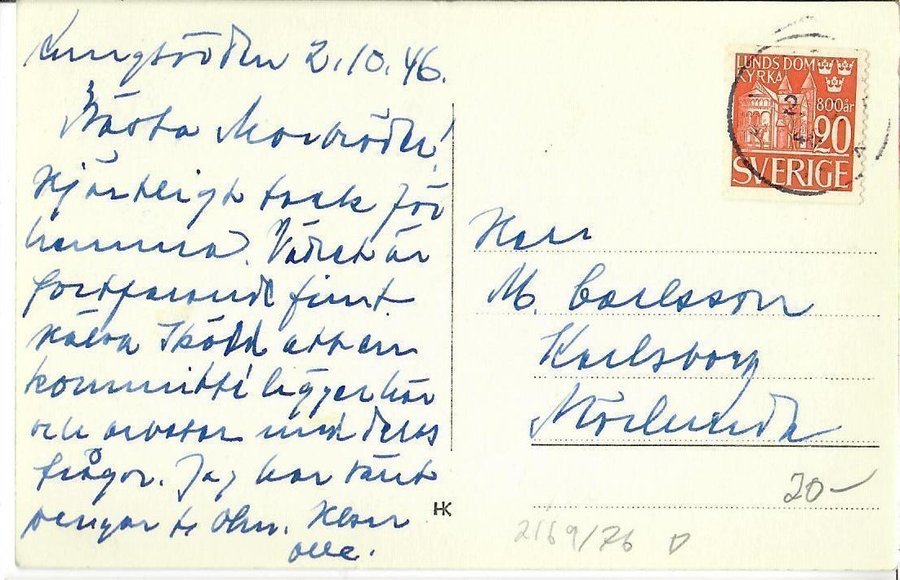 2.10.46.
Bästa Morbröder!
Hjärtligt tack för
hemma. Vädret är
fortfarande fint.
att en
kommitté ligger här
och arbetar med deras
frågor. Jag har sänt
pengar t. Ohn.
Olle.
HK
LUNDS DOM
KYRKA
800år
20
SVERIGE
Herr
M. Carlsson
Karlsborg
Mörlunda
20-
2169/76